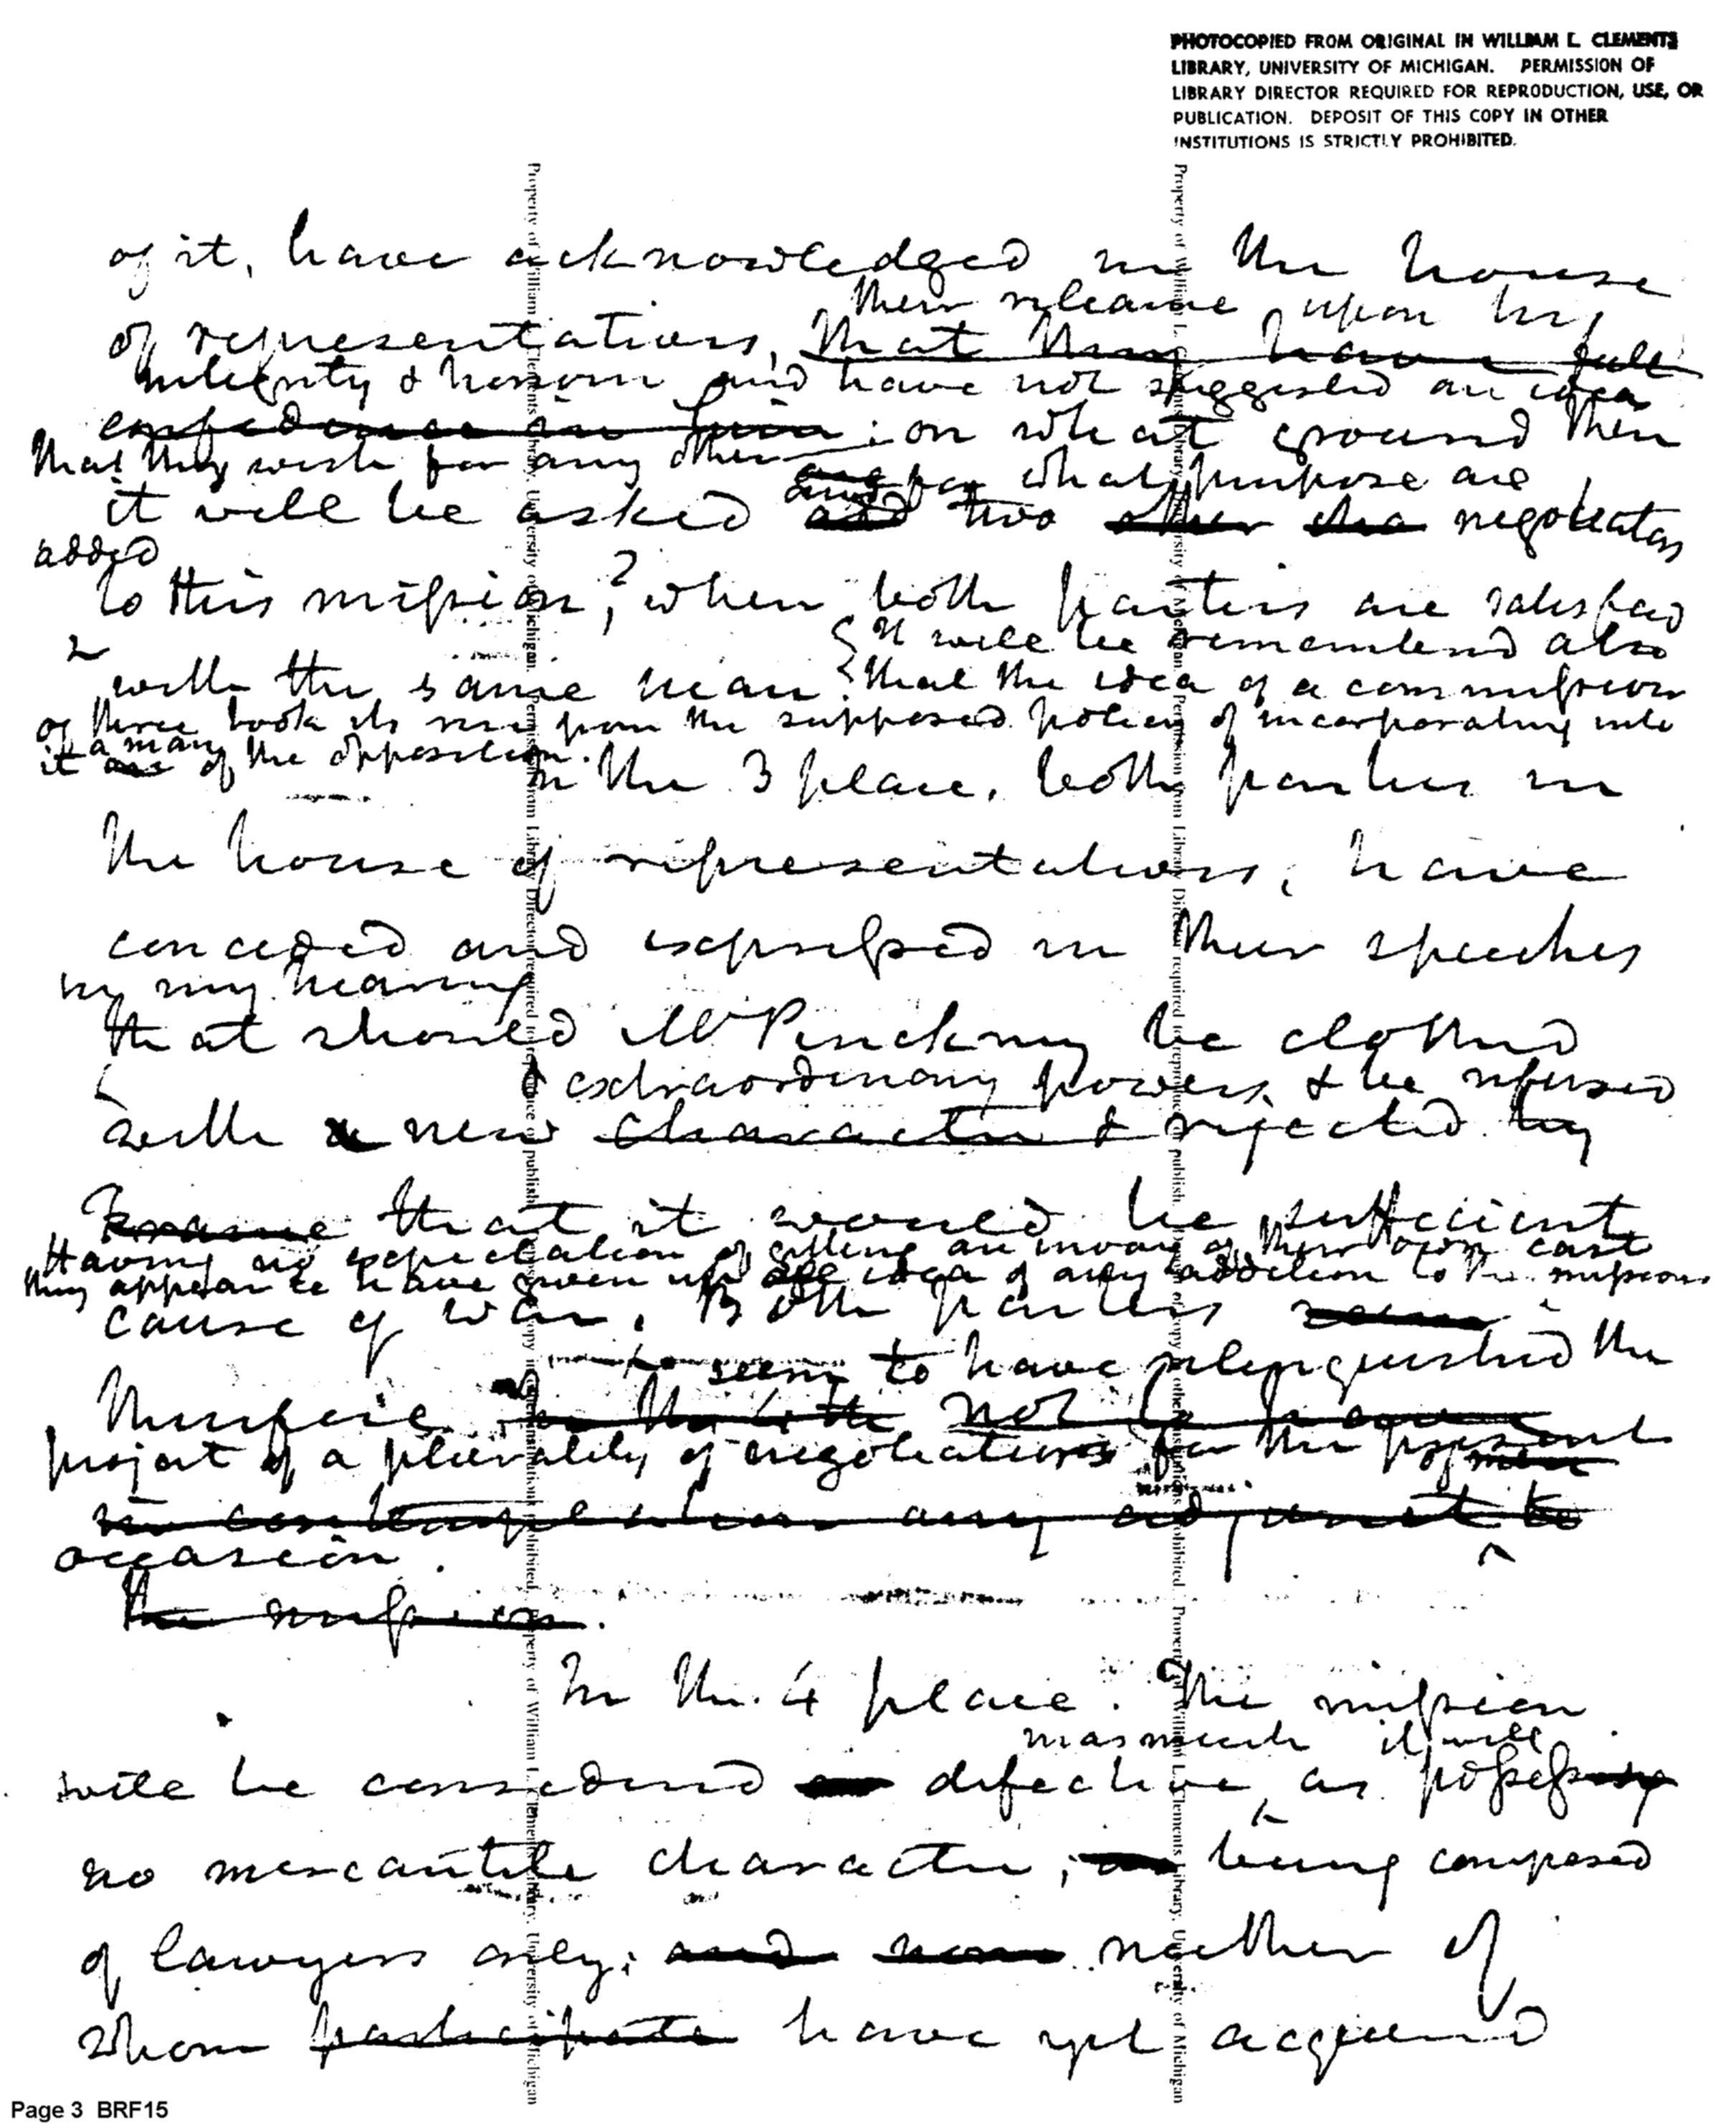 PHOTOCOPIED FROM ORIGINAL IN WILLIAM L. CLEMENTS
LIBRARY, UNIVERSITY OF MICHIGAN. PERMISSION OF
LIBRARY DIRECTOR REQUIRED FOR REPRODUCTION, USE, OR
PUBLICATION. DEPOSIT OF THIS COPY IN OTHER
INSTITUTIONS IS STRICTLY PROHIBITED.
of it, have acknowledged in the house
their reliance upon his
of representatives, that they have full
integrity & honour and have not suggested an idea
confidence in him; on what ground then
that they wish for any other
and for what purpose are
it will be asked add two other negotiators
added
to this mission, ? when both parties are satisfied
it will be remembered also
with the same man? that the idea of a commission
of three took its rise from the supposed policy of incorporating into
it a man of the opposition.
In the 3 place, both parties in
the house of representatives, have
conceded and expressed in their speeches
in my hearing
that should Mr Pinckney be clothed
extraordinary powers & be refused
with a new character & rejected by
France that it would be sufficient
Having no expectation of getting an envoy of their own cast
they appear to have given up all idea of any addition to the mission
cause of war. Both parties seem
seem to have relinquished the
therefore in the 4th not to have
project of a plurality of negotiators for the present
in contemplation any adjunct to
occasion.
the mission.
In the 4 place. The mission
inasmuch it will
will be considered as defective, as possess
no mercantile character, being composed
of lawyers only; and none neither of
whom participate have yet acquired
Page 3 BRF15